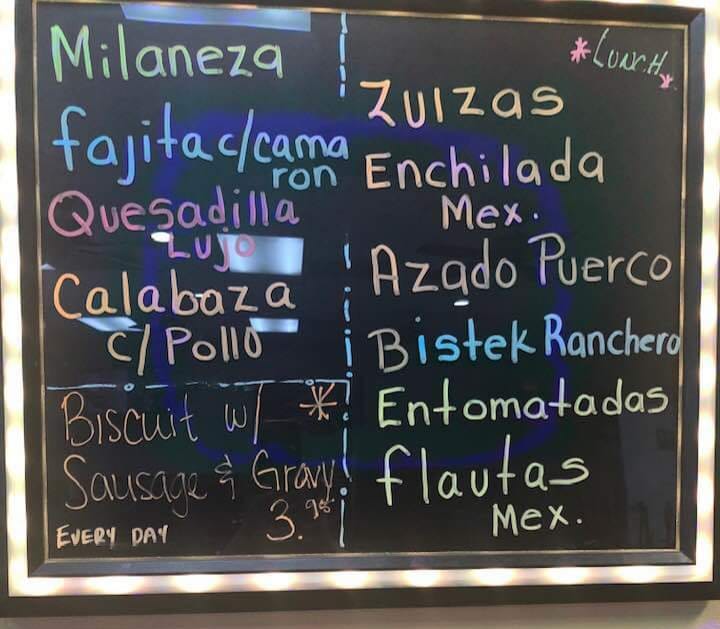 Milaneza
fajita c/cama
ron
Quesadilla
Lujo
Calabaza
c/Pollo
Biscuit w/ *
Sausage & Gravy!
EVERY DAY 3.98
*LUNCH*
Zuizas
Enchilada
Mex.
Azado Puerco
Bistek Ranchero
Entomatadas
flautas
Mex.